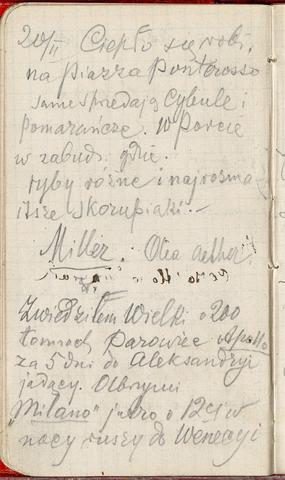 20/II Ciepło się robi,
na Piazza Ponterosso
same sprzedają Cybule i
pomarańcze. W Porcie
w zabud. gdzie
ryby różne i najrozma
itsze skorupiaki.—
Miller. Olea aether.
Zwiedziłem Wielki o 200
tonnach parowiec "Apollo
za 5 dni do Aleksandryi
jadący. Olbrzymi
„Milano" jutro o 12ej w
nocy ruszy do Wenecyi